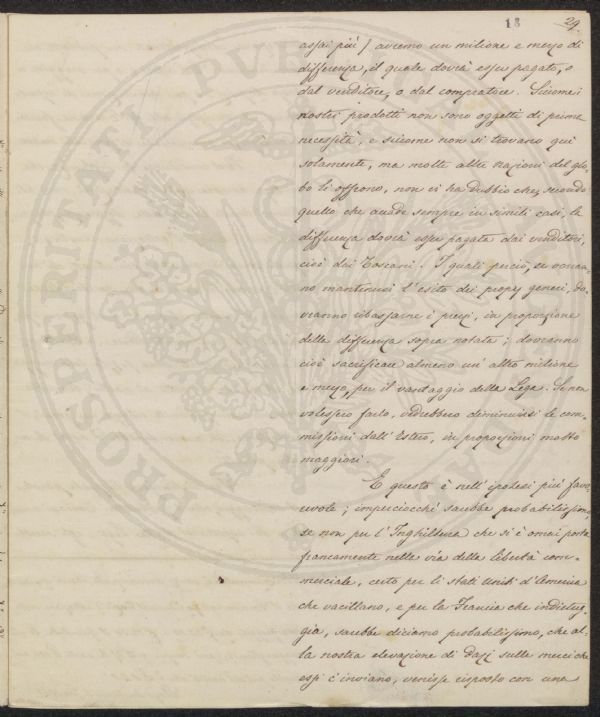 18 29.
assai più / avremo un milione e mezzo di
differenza, il quale dovrà esser pagato, o
dal venditore, o dal compratore. Siccome i
nostri prodotti non sono oggetti di prima
necessità, e siccome non si trovano qui
solamente, ma molte altre nazioni del glo-
bo li offrono, non vi ha dubbio che, secondo
quello che accade sempre in simili casi, la
differenza dovrà esser pagata dai venditori,
cioè dai Toscani. I quali perciò, se vorran-
no mantenersi l'esito dei proprj generi, do-
vranno ribassarne i prezzi, in proporzione
della differenza sopra notata; dovranno
cioè sacrificare almeno un'altro milione
e mezzo, per il vantaggio della Lega. Se non
volessero farlo, vedrebbero diminuirsi le com-
missioni dall'Estero, in proporzioni molto
maggiori.
E questo è nell'ipotesi più favo-
revole; imperciocchè sarebbe probabilissimo,
se non per l'Inghilterra che si è omai posta
francamente nella via della libertà com-
merciale, certo per li Stati Uniti d'America
che vacillano, e per la Francia che indietreg-
gia, sarebbe diciamo probabilissimo, che al-
la nostra elevazione di Dazj sulle merci che
essi c'inviano, venisse risposto con una
PROSPERITATI PVBLICAE